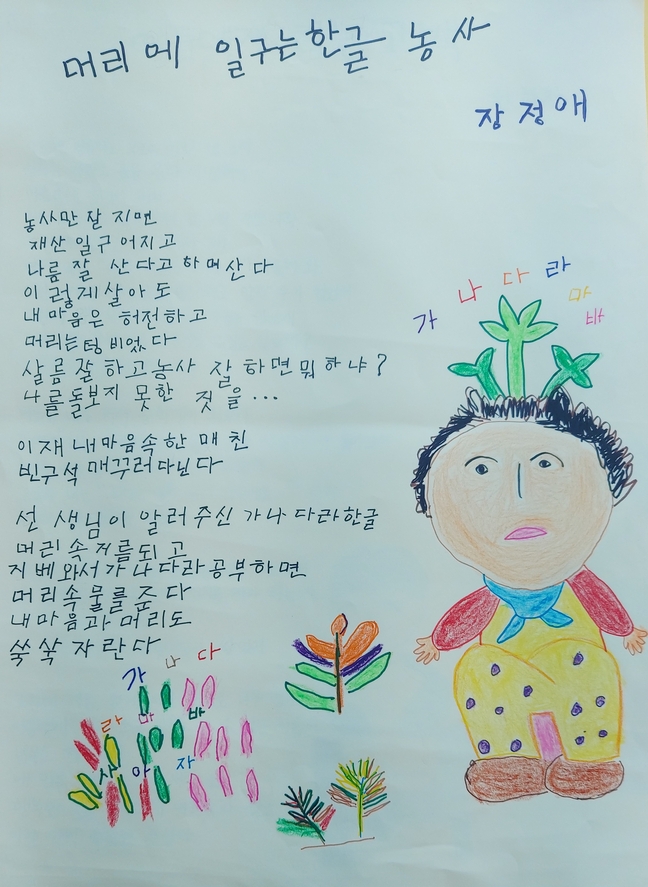 머리메 일구는한글 농사
장정애
농사만 잘 지면
재산 일구어지고
나름 잘 산다고 하며산다
이렇게살아도
내마음은 허전하고
머리는텅비었다
살름잘하고농사 잘하면뭐하냐?
나를돌보지 못한 것을...
이재내마음속한매친
빈구석매꾸러다닌다
선생님이 알러주신 가나다라한글
머리속거름되고
지베와서가나다라공부하면
머리속물를준다
내마음과머리도
쑥쑥자란다
가 나 다 라 마 바
가 나 다
라 마 바
사 아 자